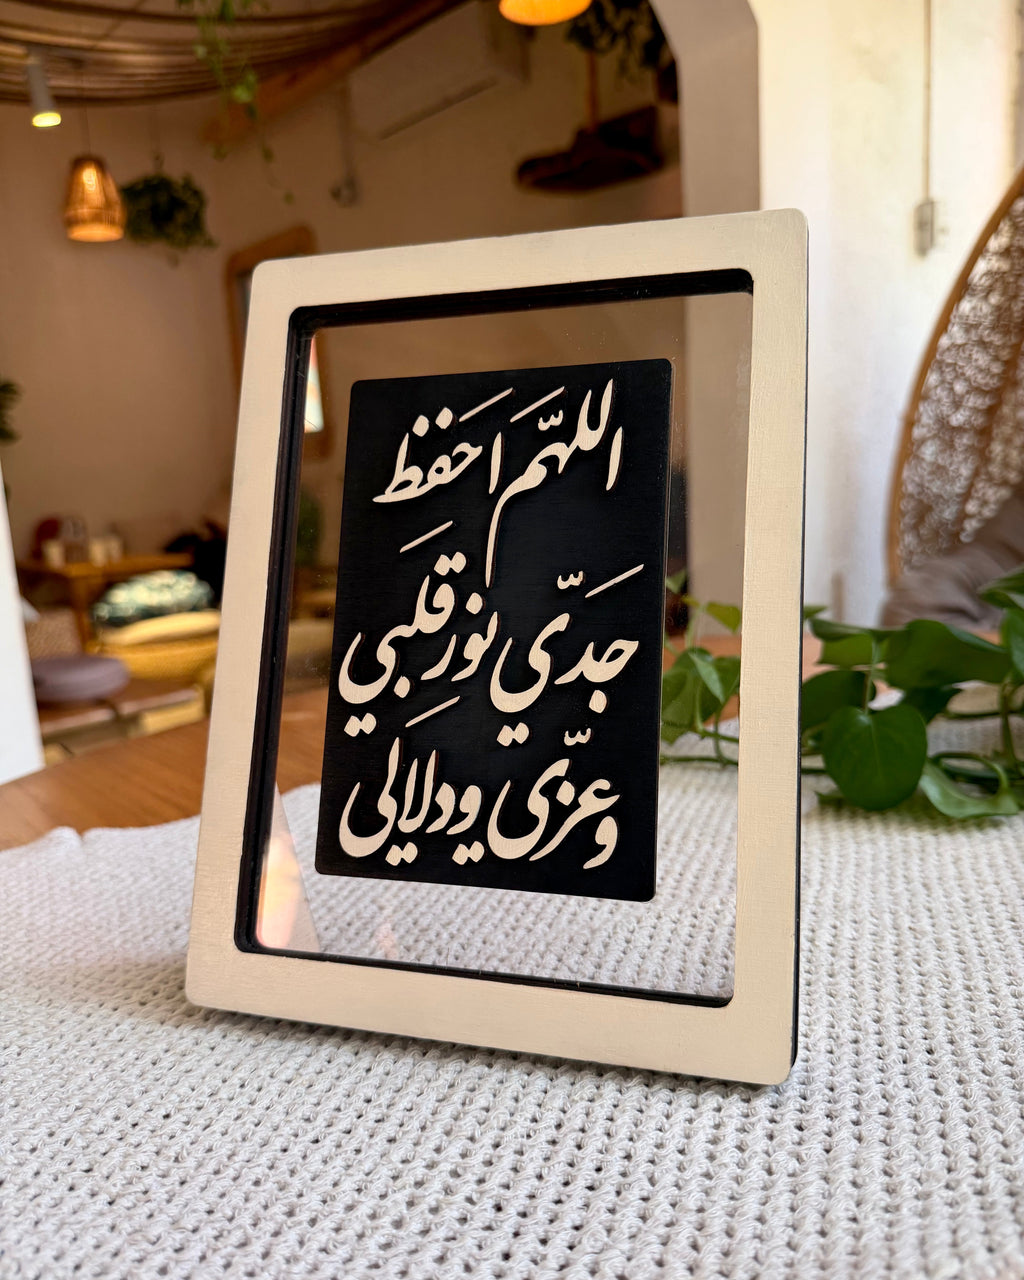 اللهمّ احفظ
جدّي نور قلبي
وعزّي ودلالي